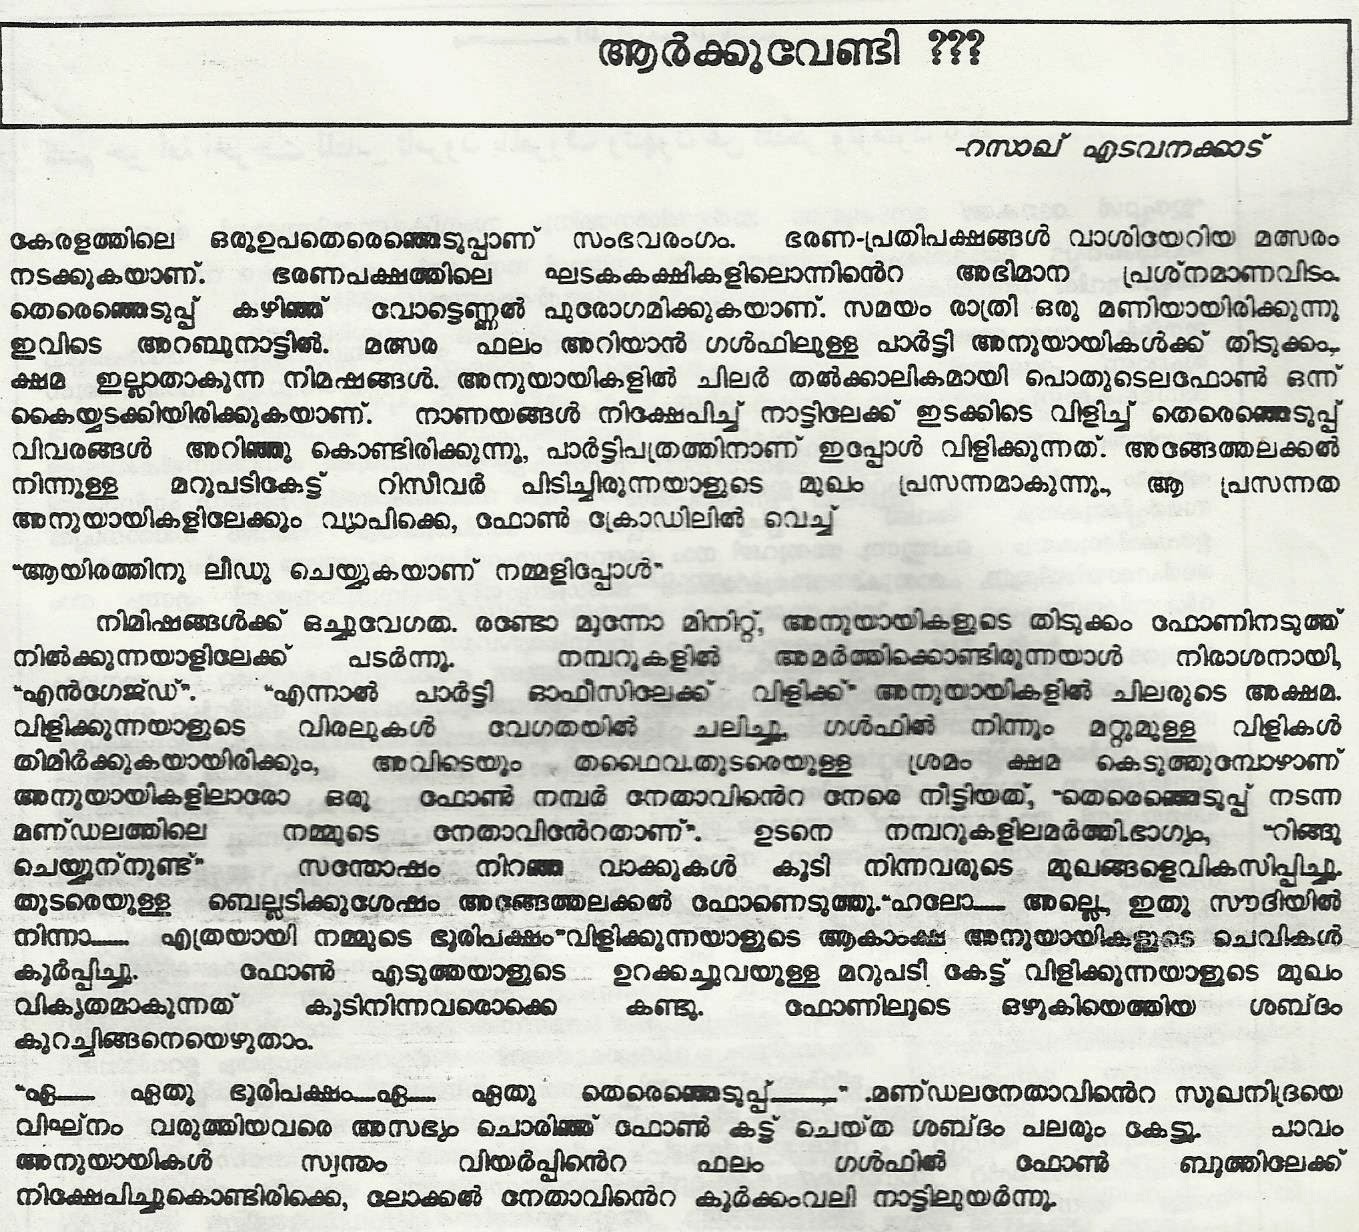 ആർക്കുവേണ്ടി ???
-റസാഖ് എടവനക്കാട്
കേരളത്തിലെ ഒരുഉപതെരെഞ്ഞെടുപ്പാണ് സംഭവരംഗം. ഭരണ-പ്രതിപക്ഷങ്ങൾ വാശിയേറിയ മത്സരം
നടക്കുകയാണ്. ഭരണപക്ഷത്തിലെ ഘടകകക്ഷികളിലൊന്നിൻെറ അഭിമാന പ്രശ്നമാണവിടം.
തെരെഞ്ഞെടുപ്പ് കഴിഞ്ഞ് വോട്ടെണ്ണൽ പുരോഗമിക്കുകയാണ്. സമയം രാത്രി ഒരു മണിയായിരിക്കുന്നു
ഇവിടെ അറബുനാട്ടിൽ. മത്സര ഫലം അറിയാൻ ഗൾഫിലുള്ള പാർട്ടി അനുയായികൾക്ക് തിടുക്കം.,
ക്ഷമ ഇല്ലാതാകുന്ന നിമഷങ്ങൾ. അനുയായികളിൽ ചിലർ തൽക്കാലികമായി പൊതുടെലഫോൺ ഒന്ന്
കൈയ്യടക്കിയിരിക്കുകയാണ്. നാണയങ്ങൾ നിക്ഷേപിച്ച് നാട്ടിലേക്ക് ഇടക്കിടെ വിളിച്ച് തെരെഞ്ഞെടുപ്പ്
വിവരങ്ങൾ അറിഞ്ഞു കൊണ്ടിരിക്കുന്നു, പാർട്ടിപത്രത്തിനാണ് ഇപ്പോൾ വിളിക്കുന്നത്. അങ്ങേത്തലക്കൽ
നിന്നുള്ള മറുപടികേട്ട് റിസീവർ പിടിച്ചിരുന്നയാളുടെ മുഖം പ്രസന്നമാകുന്നു., ആ പ്രസന്നത
അനുയായികളിലേക്കും വ്യാപിക്കെ, ഫോൺ ക്രോഡിലിൽ വെച്ച്
“ആയിരത്തിനു ലീഡു ചെയ്യുകയാണ് നമ്മളിപ്പോൾ”
നിമിഷങ്ങൾക്ക് ഒച്ചുവേഗത. രണ്ടോ മൂന്നോ മിനിറ്റ്, അനുയായികളുടെ തിടുക്കം ഫോണിനടുത്ത്
നിൽക്കുന്നയാളിലേക്ക് പടർന്നു. നമ്പറുകളിൽ അമർത്തിക്കൊണ്ടിരുന്നയാൾ നിരാശനായി,
“എൻഗേജ്ഡ്”. “എന്നാൽ പാർട്ടി ഓഫീസിലേക്ക് വിളിക്ക്” അനുയായികളിൽ ചിലരുടെ അക്ഷമ.
വിളിക്കുന്നയാളുടെ വിരലുകൾ വേഗതയിൽ ചലിച്ചു, ഗൾഫിൽ നിന്നും മറ്റുമുള്ള വിളികൾ
തിമിർക്കുകയായിരിക്കും, അവിടെയും തഥൈവ.തുടരെയുള്ള ശ്രമം ക്ഷമ കെടുത്തുമ്പോഴാണ്
അനുയായികളിലാരോ ഒരു ഫോൺ നമ്പർ നേതാവിൻെറ നേരെ നീട്ടിയത്, “തെരെഞ്ഞെടുപ്പ് നടന്ന
മണ്ഡലത്തിലെ നമ്മുടെ നേതാവിൻേറതാണ്”. ഉടനെ നമ്പറുകളിലമർത്തി.ഭാഗ്യം, “റിങ്ങു
ചെയ്യുന്നുണ്ട്” സന്തോഷം നിറഞ്ഞ വാക്കുകൾ കൂടി നിന്നവരുടെ മുഖങ്ങളെവികസിപ്പിച്ചു.
തുടരെയുള്ള ബെല്ലടിക്കുശേഷം അങ്ങേത്തലക്കൽ ഫോണെടുത്തു.“ഹലോ...... അല്ലെ, ഇതു സൗദിയിൽ
നിന്നാ....... എത്രയായി നമ്മുടെ ഭൂരിപക്ഷം”വിളിക്കുന്നയാളുടെ ആകാംക്ഷ അനുയായികളുടെ ചെവികൾ
കൂർപ്പിച്ചു. ഫോൺ എടുത്തയാളുടെ ഉറക്കച്ചുവയുള്ള മറുപടി കേട്ട് വിളിക്കുന്നയാളുടെ മുഖം
വികൃതമാകുന്നത് കൂടിനിന്നവരൊക്കെ കണ്ടു. ഫോണിലൂടെ ഒഴുകിയെത്തിയ ശബ്ദം
കുറച്ചിങ്ങനെയെഴുതാം.
“ഏ....... ഏതു ഭൂരിപക്ഷം.....ഏ...... ഏതു തെരെഞ്ഞെടുപ്പ്............” .മണ്ഡലനേതാവിൻെറ സുഖനിദ്രയെ
വിഘ്നം വരുത്തിയവരെ അസഭ്യം ചൊരിഞ്ഞ് ഫോൺ കട്ട് ചെയ്ത ശബ്ദം പലരും കേട്ടു. പാവം
അനുയായികൾ സ്വന്തം വിയർപ്പിൻെറ ഫലം ഗൾഫിൽ ഫോൺ ബൂത്തിലേക്ക്
നിക്ഷേപിച്ചുകൊണ്ടിരിക്കെ, ലോക്കൽ നേതാവിൻെറ കൂർക്കംവലി നാട്ടിലുയർന്നു.